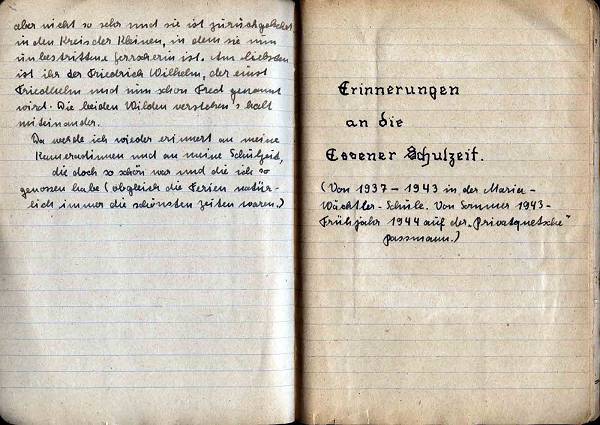 aber nicht so sehr und sie ist zurückgekehrt
in den Kreis der Kleinen, in dem sie nun
unbestrittene Herrscherin ist. Am liebsten
ist ihr der Friedrich Wilhelm, der einst
Friedhelm und nun schon Fred genannt
wird. Die beiden Wilden verstehen's halt
miteinander.
Da werde ich wieder erinnert an meine
Kameradinnen und an meine Schulzeit,
die doch so schön war und die ich so
genossen habe (obgleich die Ferien natür-
lich immer die schönsten Zeiten waren.)
Erinnerungen
an die
Essener Schulzeit.
(Von 1937 – 1943 in der Maria-
Wächtler-Schule. Von Sommer 1943-
Frühjahr 1944 auf der „Privatquetsche"
Passmann.)